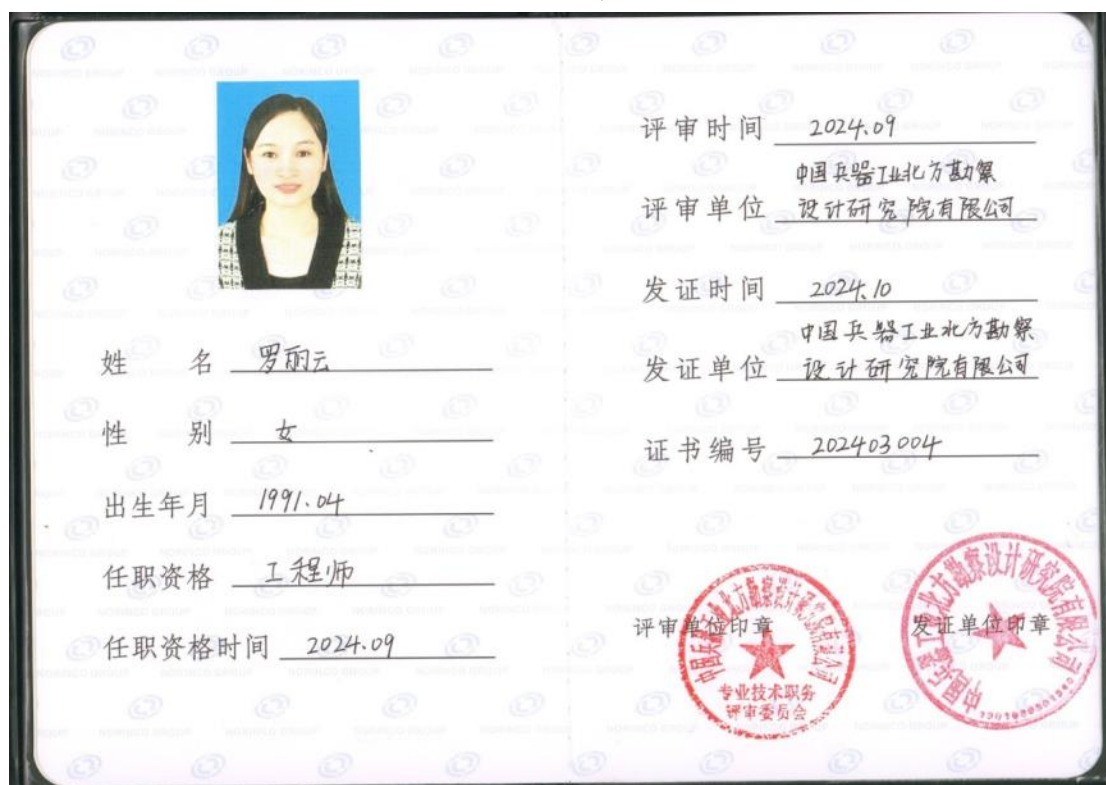 姓 名 罗丽云
性 别 女
出生年月 1991.04
任职资格 工程师
任职资格时间 2024.09
评审时间 2024.09
中国兵器工业北方勘察
评审单位 设计研究院有限公司
发证时间 2024.10
中国兵器工业北方勘察
发证单位 设计研究院有限公司
证书编号 202403004
评审单位印章
中国兵器工业北方勘察设计研究院有限公司
专业技术职务
评审委员会
发证单位印章
中国兵器工业北方勘察设计研究院有限公司